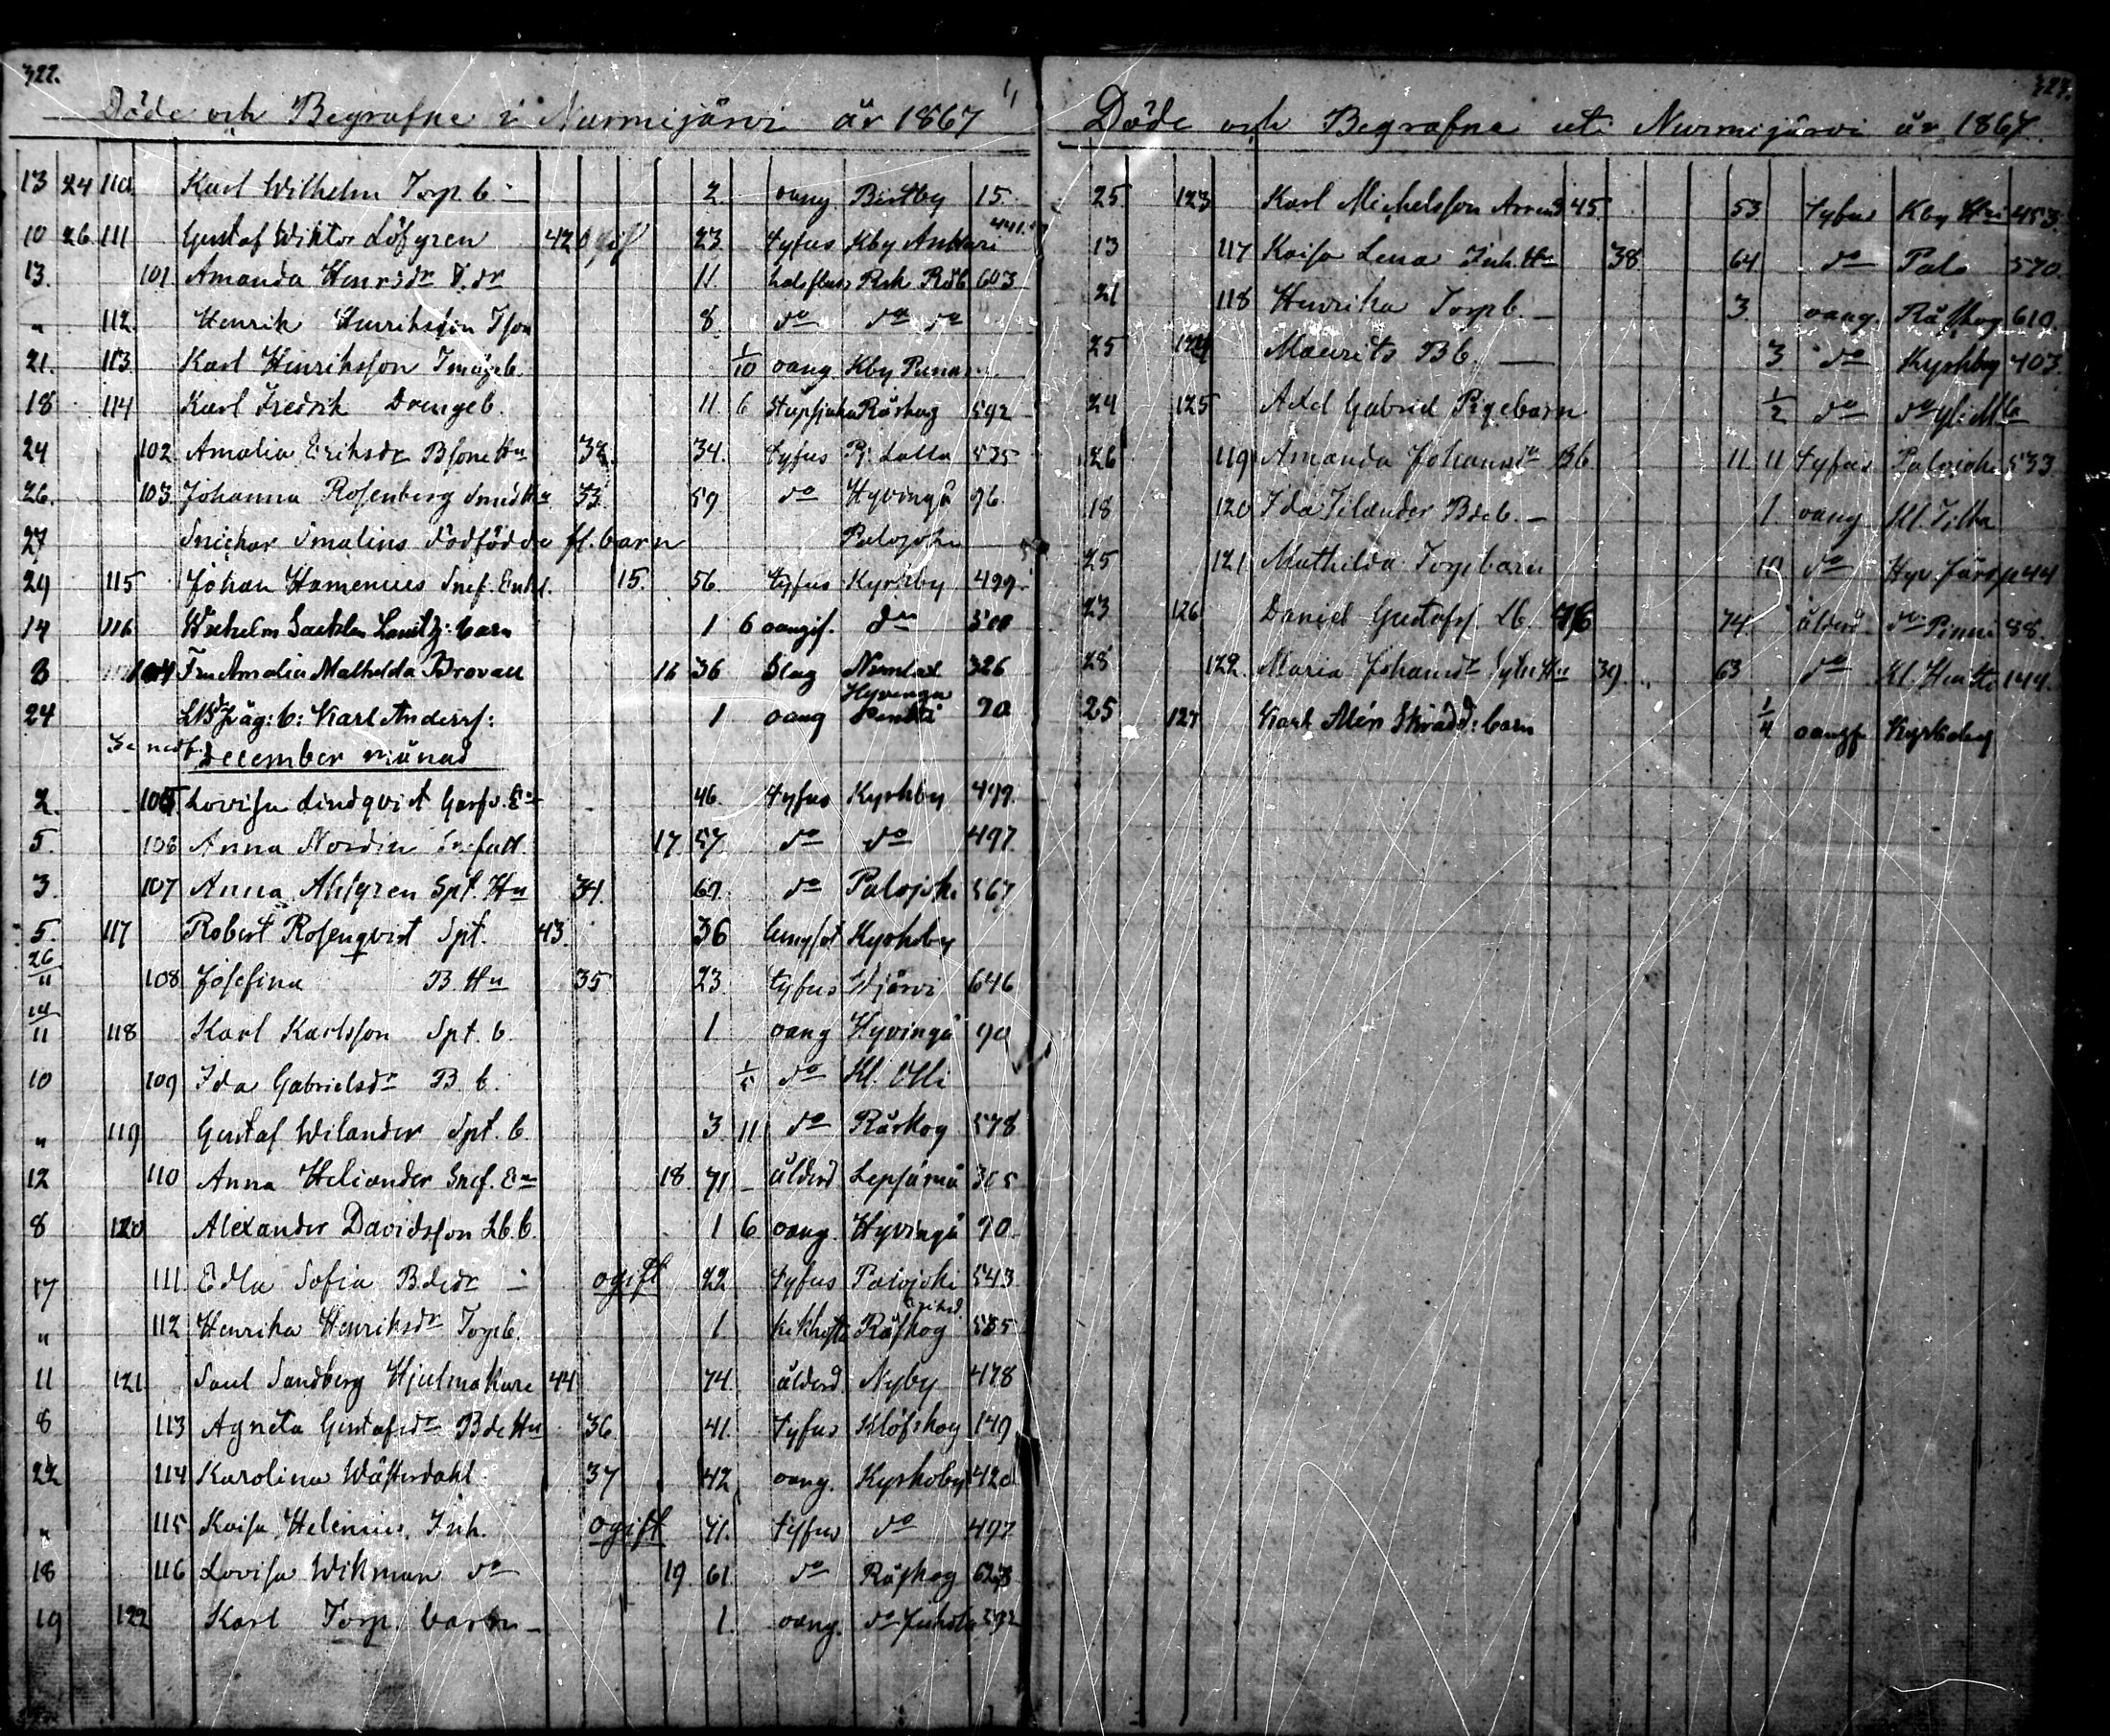 322.
Döde och Begrafne i Nurmijärvi år 1867
13 24 110 Karl Wilhelm Torp b - 2. oang. Bistby 15
10 26 111 Gustaf Wiktor Löfgren 42 ogif 23 tyfus Kby Anttari 441
13. 101 Amanda Henrsdr T. dr 11. halsfluss Rsk 603
" 112 Henrik Henriksson Tson 8 do do do
21. 113 Karl Henriksson b. 1/10 oang Kby
18 114 Karl Fredrik Drengeb. 11. 6 Råskog 592
24 102 Amalia Eriksdr Bsone Hu 32. 34. tyfus Pj. 535
26. 103 Johanna Rosenberg Smed Hu 33. 59 do Hyvingå 96.
27 Snickar Smalins dödfödde fl. barn Palojoki
29 115 Johan Hamenius Inh. Enkl. 15. 56. tyfus Kyrkby 499.
14 116 Wilhelm barn 1 6 oangif. do 500
8 104 Fru Amalia Mathilda Brovall 16 36 Slag Numlax 326
24 b: Karl Anderss: 1 oang Hyvingå Pentti 90
December månad
2. 105. Lovisa Lindqvist Garfv. En 46. tyfus Kyrkby 499.
5. 106 Anna Nordin 17 57. do do 497.
3. 107 Anna Ahlgren Spt. Hu 34. 67. do Palojoki 567
5. 117 Robert Rosenqvist Spt. 43. 36 lungsot Kyrkby
26/11 108 Josefina B. Hu 35 23. tyfus 646
14/11 118 Karl Karlsson Spt. b. 1. oang Hyvingå 90
10 109 Ida Gabrielsdr B. b. 1/5 do Kl. Olli
" 119 Gustaf Wilander Spt. b. 3. 11 do Råskog 578
12 110 Anna Heliander Inh. En 18. 71 - ålderd Lepsämä 305
8 120 Alexander Davidsson Lb. b. 1 6 oang. Hyvingå 90.
17 111. Edla Sofia Bdedr - ogift 22 tyfus Palojoki 543
" 112 Henrika Henriksdr Torpb. 1. kikhosta Råskog 585
11 121 Saul Sandberg Hjulmakare 44. 74. ålderd. Nyby 478
8 113 Agneta Gustafsdr Bde Hu 36 41. tyfus Klöfskog 149
22 114 Karolina Wästerdahl 37 42 oang. Kyrkoby 420
" 115 Kaisa Helenius Inh. ogift 41. tyfus do 497
18 116 Lovisa Wikman do 19 61. do Råskog 623
19 122 Karl Torp. barn - 1. oang. do Juhola 592
327.
Döde och Begrafne uti Nurmijärvi år 1867.
25. 123 Karl Michelsson Arrend 45. 53 tyfus Kby 453.
13 117 Kaisa Lena Inh. Hu 38. 64 do Palo 570.
21 118 Henrika Torp b - 3. oang. Råskog 610
25 124 Maurits B b. - 3 do Kyrkby 403.
24 125 Axel Gabriel Pigebarn 1/2 do do
26 119 Amanda Johansdr B b 11. 11 tyfus Palojoki 533
18 120 Ida Silander Bde b. - 1. oang Kl.
25 121 Mathilda Torp barn 10 do Hyv. p 44
23 126 Daniel Gustafss. Lb. 46 74. ålderd. do Pinni 88.
28 122. Maria Johansdr Hu 39. 63 do Kl. 144.
25 127 Karl Alén Skrädd: barn 1/4 oangf Kyrkoby